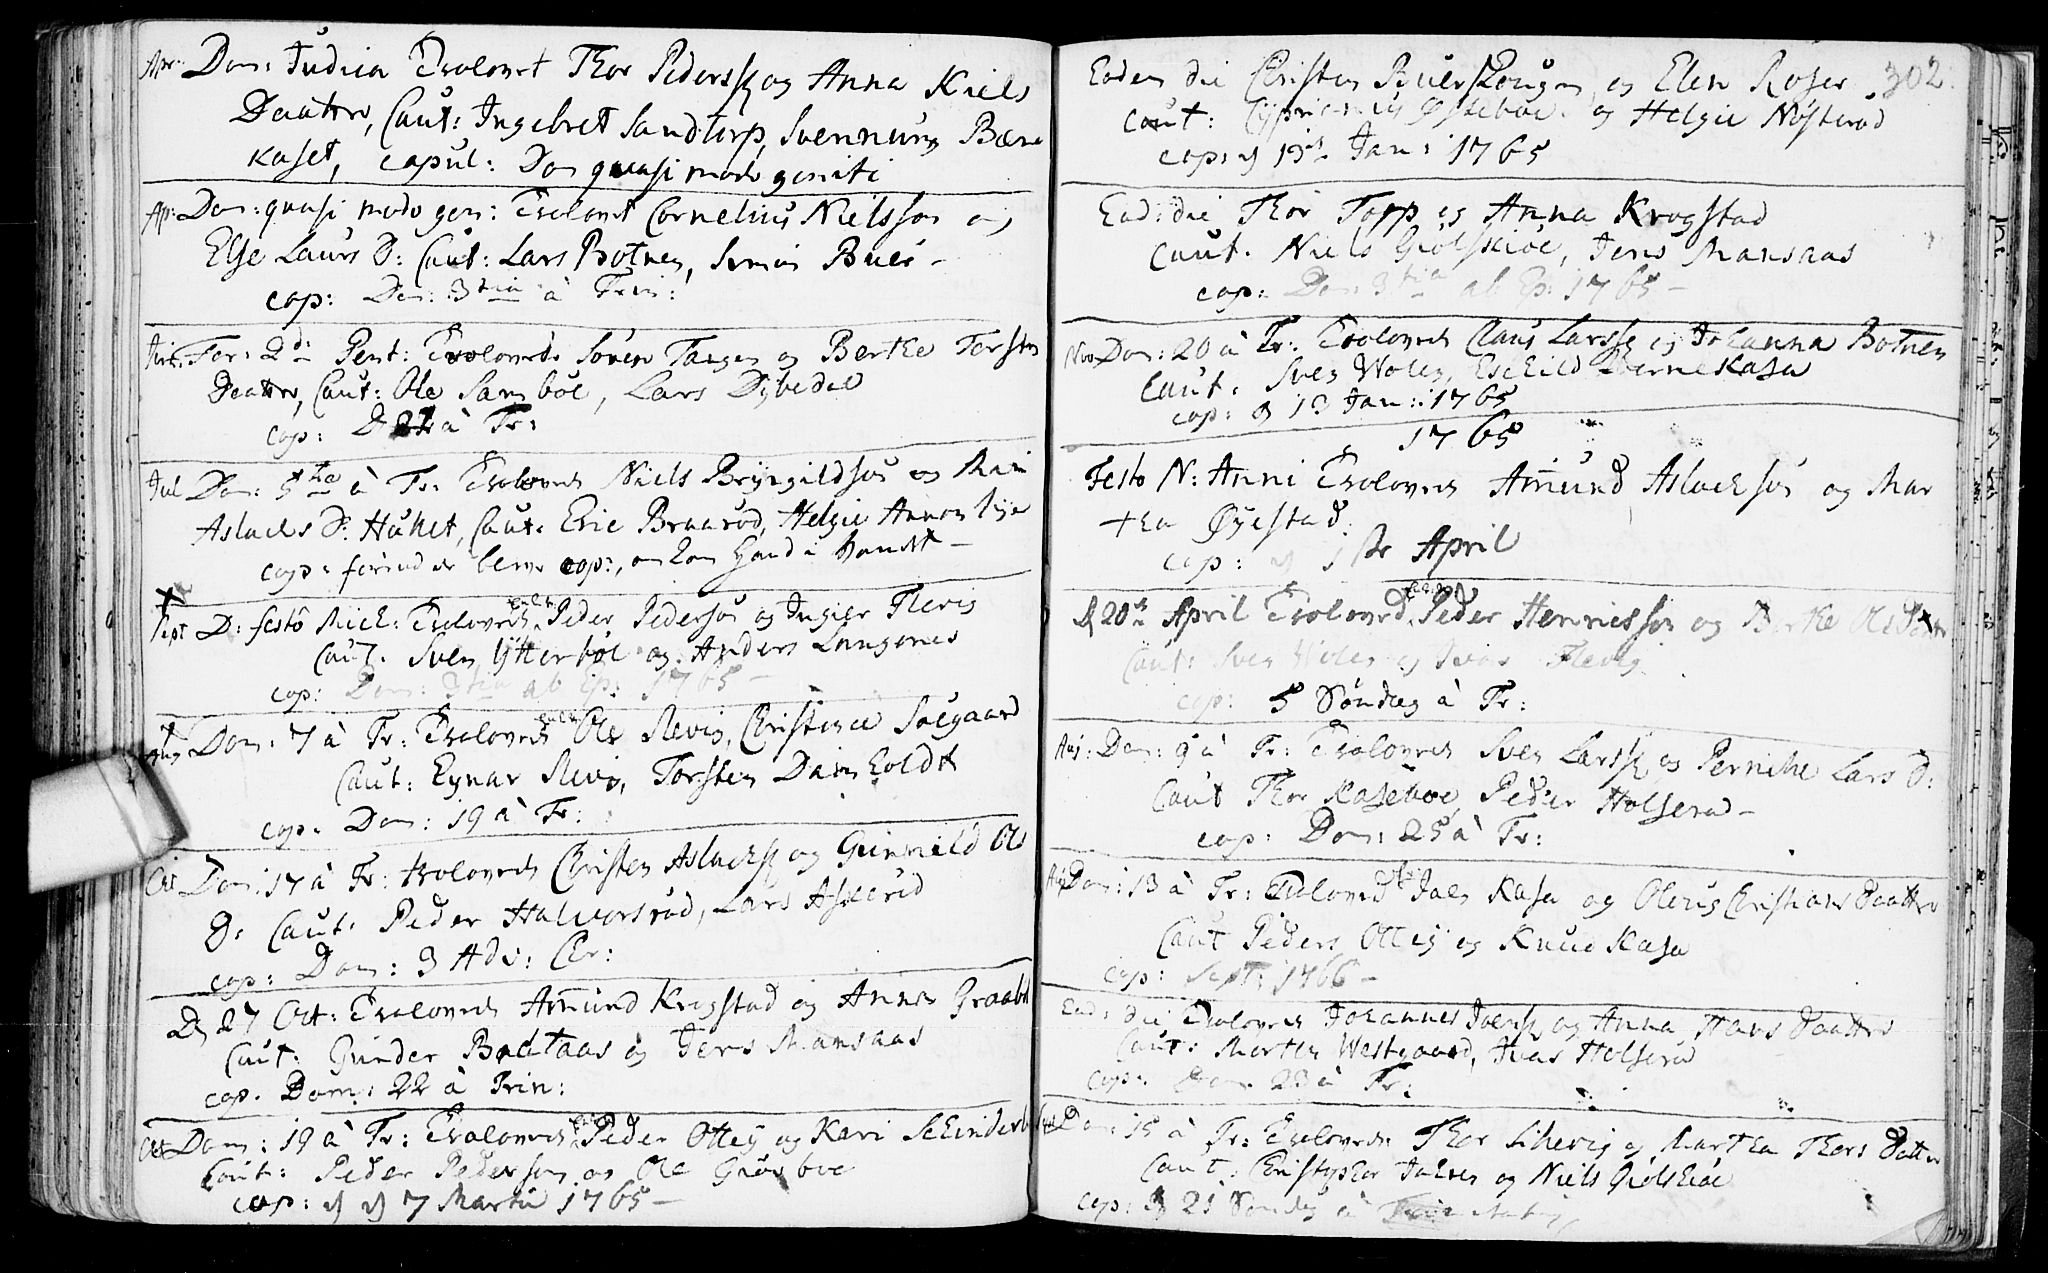 Apr. Dom: Judica Trolovet Thor Pederss og Anna Niels
Daatter, Caut: Ingebret Sandtorp, Svennung Bærne
kaset, copul: Dom quasi modo geniti
Apr: Dom: quasi modo gen: Trolovet Cornelius Nielsson og
Else Laurs D: Caut: Lars Botnen, Simon Buer -
cop: Dom: 3tia à Trin:
Fer: 2di Pent: Trolovede Sören Tangen og Berthe Torsten
Daatter, Caut: Ole Samböe, Lars Dybedal
cop: D 21 à Tr:
Jul Dom: 5te à Tr: Trolovede Niels Bryngildson og Mari
Aslacks D: Haket, Caut: Eric Braaröd, Helgie
cop: forinden cop:, om kom Hand i Vandet -
Sept D: festo Mich: Trolovede Peder Pederson og Ingier Flevig
Caut. Sven Ytterböe og Anders Langenes
cop: Dom: 3tia ab Ep: 1765 -
Aug Dom: 7 à Tr: Trolovede Ole Revig, Christence Soegaard
Caut: Eynar Revig, Torsten Damholdt
cop. Dom: 19 à Tr:
Oct Dom: 17 à Tr: trolovede Christen Aslacks og Gunnild Ols
D: Caut: Peder Halvorsröd, Lars Askeröd
cop: Dom: 3 Adv: Chr:
D 27 Oct: Trolovede Amund Krogstad og Anna Graabek
Caut: Gunder Brataas og Jens Mansaas
cop. Dom: 22 à Trin:
Oct Dom: 19 à Tr: Trolovede Peder Ottey og Kari
Caut: Peder Pederson og Ole Grönboe
cop: d 7 Martii 1765 -
302
Eodem die Christen Buer og Elen Roser
Caut: Östeboe og Helgie Nösteröd
cop: d 13de Jan: 1765
Eod: die Thor Topp og Anna Krogstad
Caut. Niels Giölskiöe, Jens Mansaas
cop: Dom 3tia ab Ep: 1765 -
Nov Dom: 20 à Tr: Trolovede Claus Larss og Johanna Botnen
Caut: Sven Wolen, Eschild Berne Kasa
cop: d 13 Jan: 1765
1765
Festo N: Anni Trolovede Amund Aslackson og Mar
tha Öyestad
cop: d 1ste April
d 20de April Trolovede Peder Henricsson og Berthe Ols Datter
Caut: Sven Wolen og Ivar Flevig
cop: 5 Söndag à Tr:
Aug: Dom: 9 à Tr: Trolovede Sven Larss og Pernihe Lars D:
Caut Thor Kaseboe, Peder Holseröd -
cop: Dom: 25 à Tr:
Aug Dom: 13 à Tr: Trolovede Kasa og Christians Daatter
Caut Peder Ottey og Knud Kasa
cop: Sept: 1766 -
Eod: die Trolovede Johannes Iverss og Anna Hans Daatter
Caut: Morten Westgaard, Ivar Holseröd
cop: Dom. 23 à Tr:
Dom: 15 à Tr: Trolovede Thor og Martha Thors Datter
Caut: Christopher og Niels Giölskiöe
cop: d 21 Söndag à